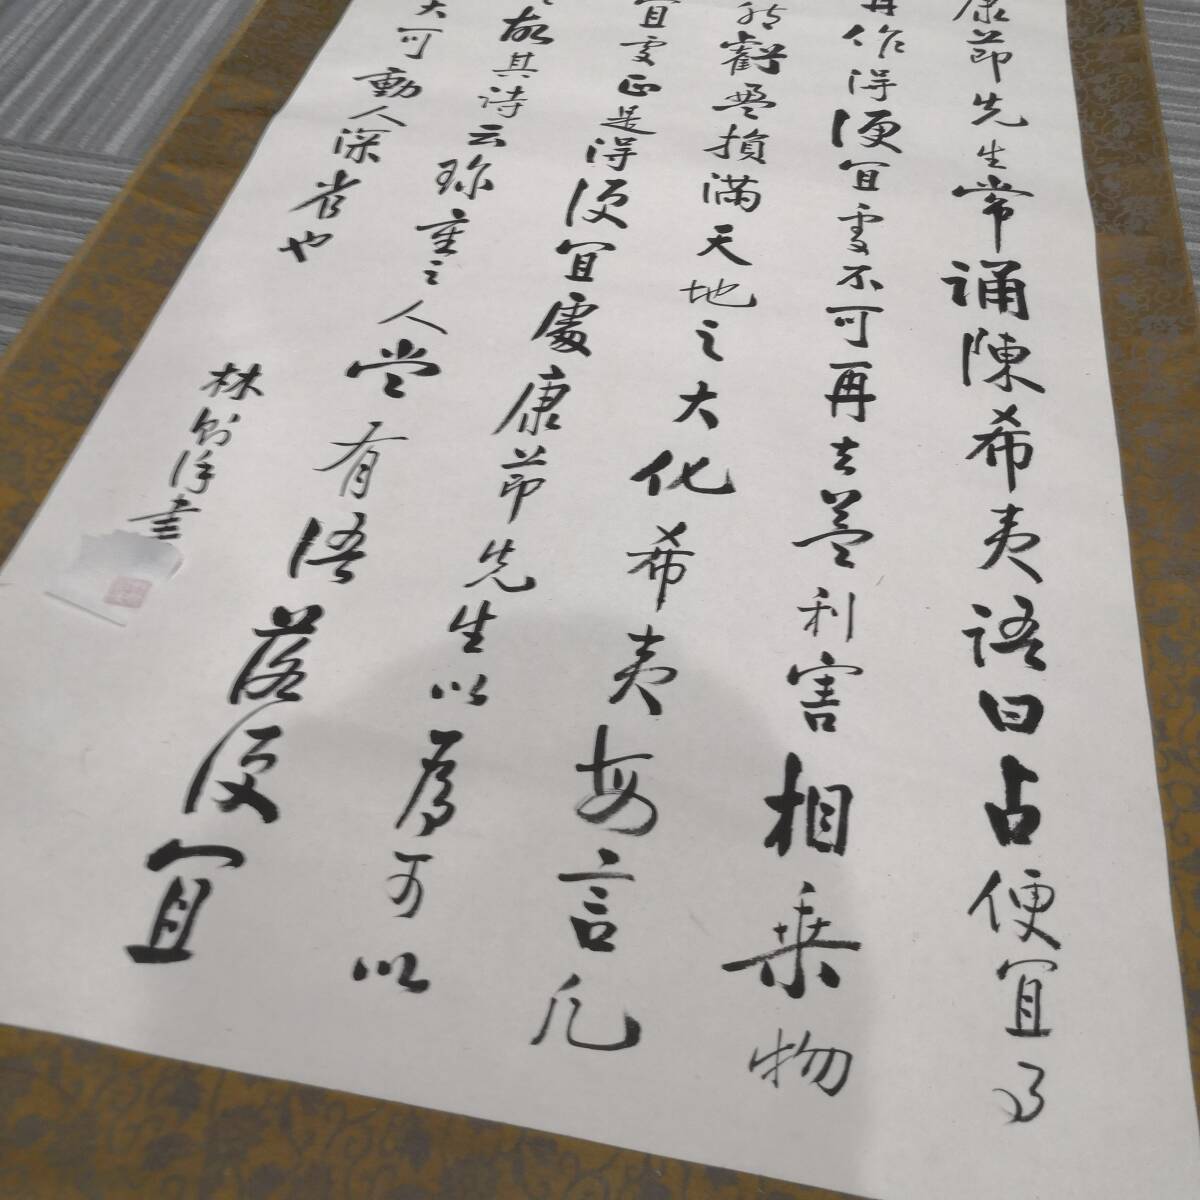 康節先生常誦陳希夷語曰占便宜事
再作得便宜處不可再去蓋利害相乘物
虧盈損滿天地之大化希夷每言凡
宜處正是得便宜處康節先生以為可以
故其詩云珍重之人嘗有語落便宜
大可動人深省也
林則徐書